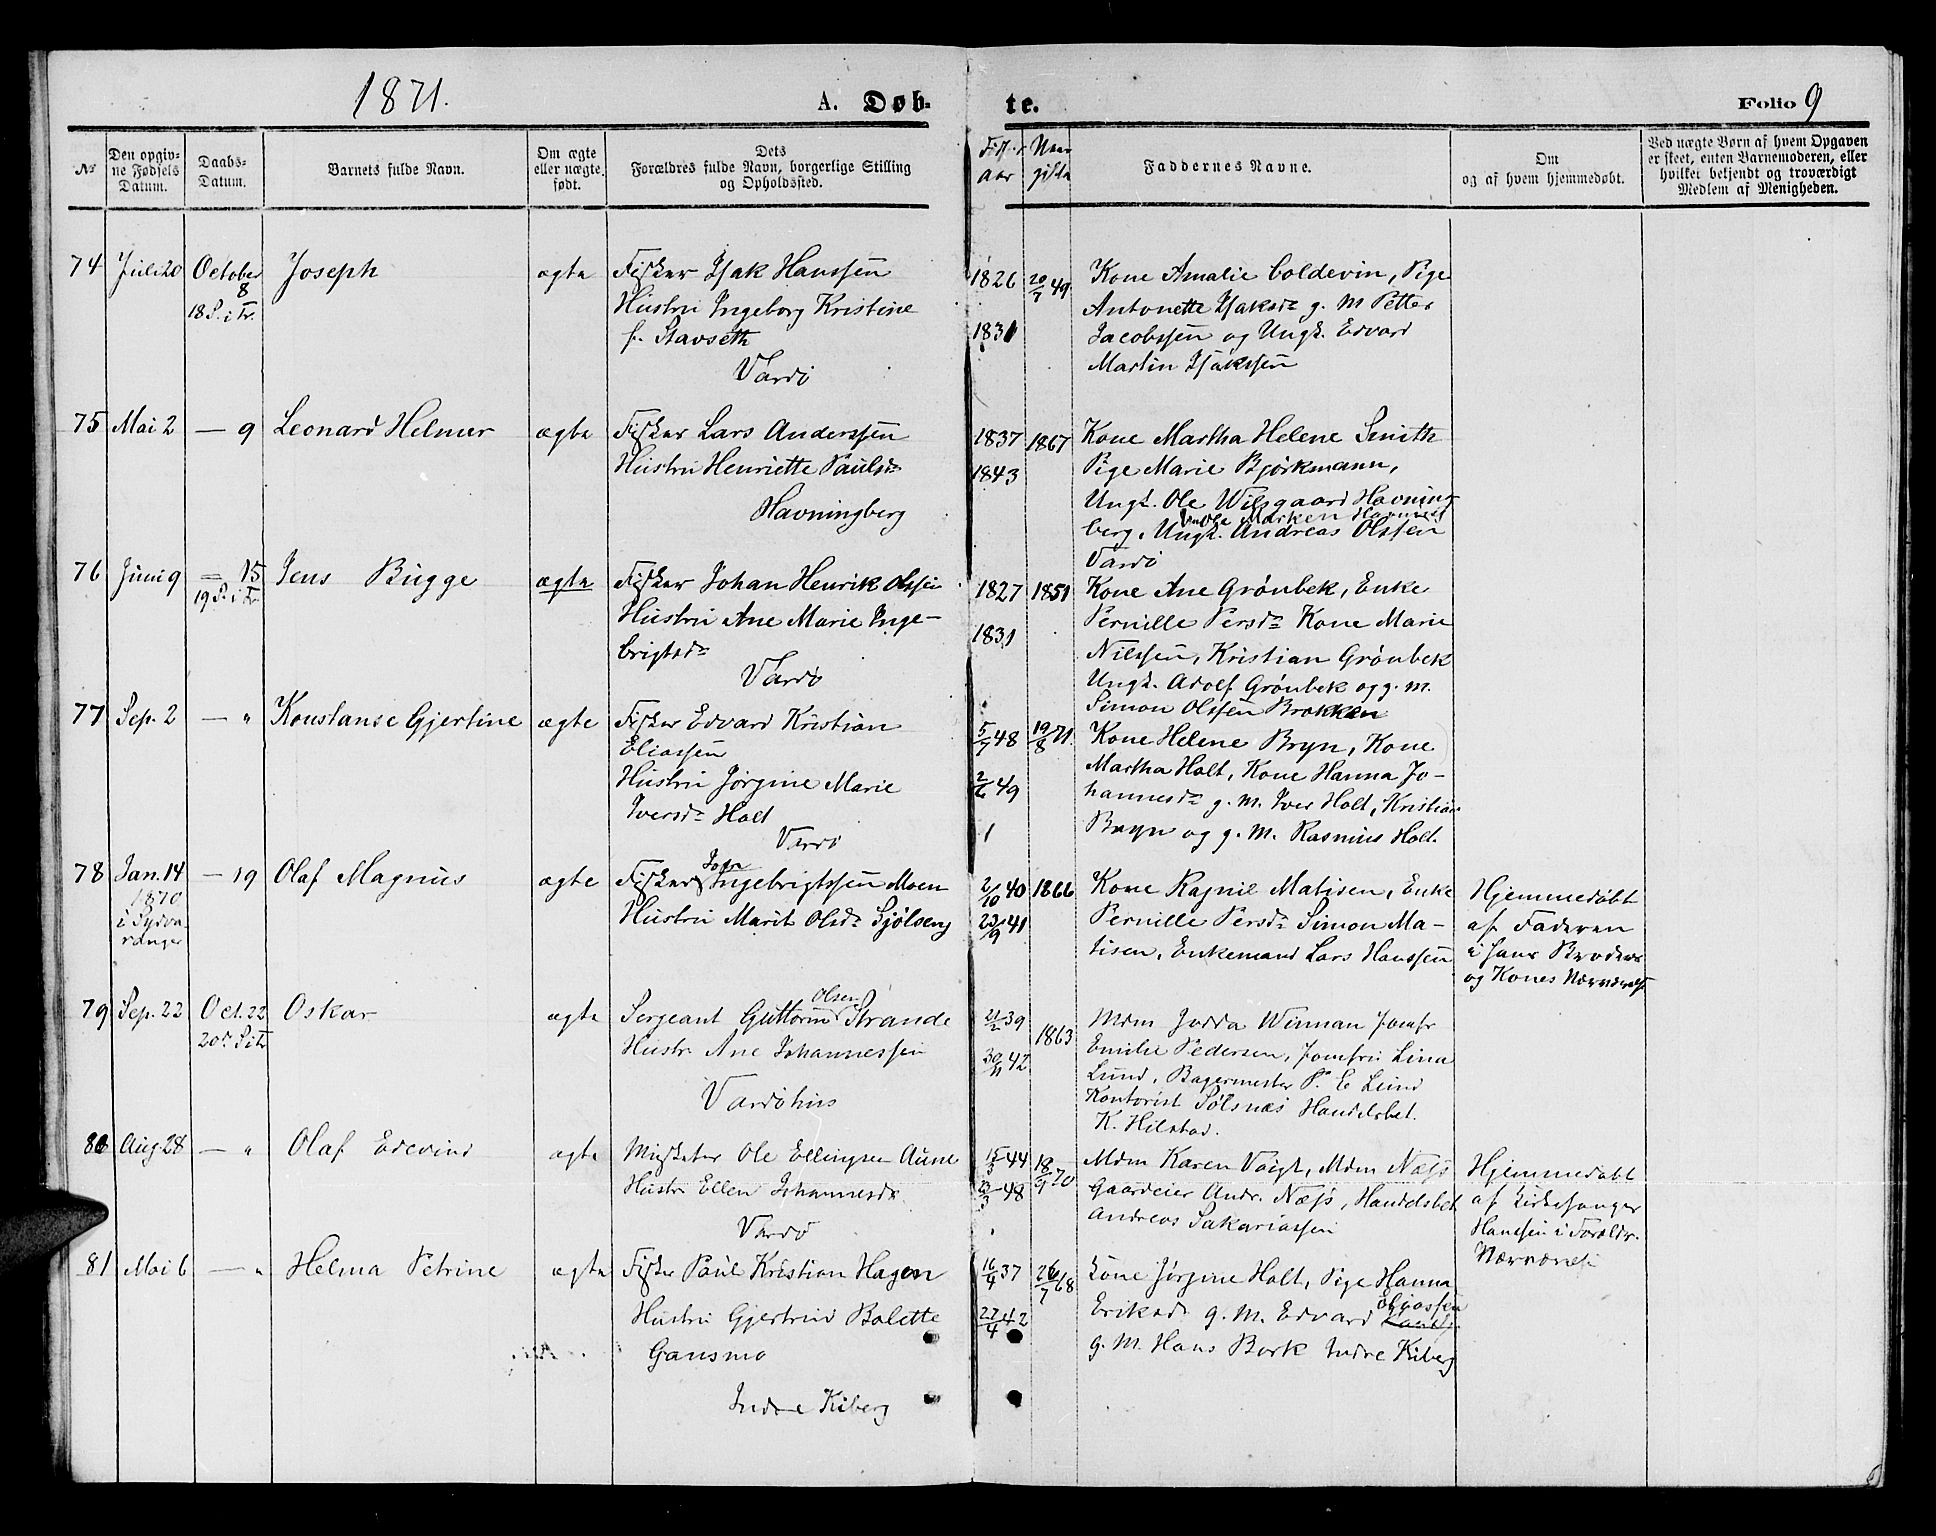 1871.
A. Døb-
te.
Folio 9
No
Den opgiv-
ne Fødsels
Datum.
Daabs-
Datum.
Barnets fulde Navn.
Om ægte
eller uægte
født.
Dets
Forældres fulde Navn, borgerlige Stilling
og Opholdssted.
aar
Faddernes Navne.
Om
og af hvem hjemmedøbt.
Ved uægte Børn af hvem Opgaven
er skeet, enten Barnemoderen, eller
hvilket bekjendt og troværdigt
Medlem af Menigheden.
74 Juli 20 October 8 18 S. i Tr. Joseph ægte
Fisker Isak Hanssen
Hustru Ingeborg Kristine
f. Stavseth
Vardö
1826 20/7 49
1831
Kone Amalie Coldevin, Pige
Antonette Isaksdr g. M Petter
Jacobssen og Ungk. Edvard
Martin Isakssen
75 Mai 2 — 9 Leonard Helmer ægte
Fisker Lars Anderssen
Hustru Henriette Paulsdr
Havningberg
1837 1867
1843
Kone Martha Helene Smith
Pige Marie Bjørkmann,
Ungk. Ole Wilsgaard Havning
berg, Ungk. Andreas Olssen
Vardö
76 Juni 9 — 15 19 S. i Tr Jens Bugge ægte
Fisker Johan Henrik Olssen
Hustru Ane Marie Inge-
brigtsdr
Vardö
1827 1851
1831
Kone Ane Grönbek, Enke
Pernille Persdr Kone Marie
Nilssen, Kristian Grönbek
Ungk. Adolf Grönbek og g. m.
Simon Olssen Brokken
77 Sep. 2 — " Konstanse Gjertine ægte
Fisker Edvard Kristian
Eliassen
Hustru Jörgine Marie
Iversdr Holt
Vardö
5/7 48 19/8 71.
2/6 49
1
Kone Helene Bryn, Kone
Martha Holt, Kone Hanna Jo-
hannesdr g. M. Iver Holt, Kristian
Bryn og g. M. Rasmus Holt.
78 Jan. 14 1870 i Sydva-
ranger — 19 Olaf Magnus ægte
Fisker Ingebrigtssen Moen
Hustru Marit Olsdr Sjölseng
2/10 40 1866
23/9 41
Kone Ragnil Matisen, Enke
Pernille Persdr Simon Ma-
tisen, Enkemand Lars Hanssen
Hjemmedöbt
af Faderen
i hans Broders
og Kones Nærværelse
79 Sep. 22 Oct. 22 20de S i Tr Oskar ægte
Sergeant Guttorm Olsen Strande
Hustr. Ane Johannessen
Vardöhus
21/2 39 1863
30/11 42
Mdm Jodda Winnan Jomfr
Emilie Pedersen, Jomfru Lina
Lund, Bagermester P. E Lund
Kontorist Sölsnæs Handelsbet.
K. Hilstad.
80 Aug 28 — " Olaf Edevind ægte
Musketer Ole Ellingsen Aune
Hustr. Ellen Johannesdr
Vardö
15/3 44 18/9 70
23/3 48
Mdm Karen Voigt, Mdm Næss
Gaardeier Andr. Næss, Handelsbet
Andreas Sakariassen
Hjemmedöbt
af Kirkesanger
Hanssen i Foreldr.
Nærværelse
81 Mai 6 — " Helma Petrine ægte
Fisker Paul Kristian Hagen
Hustru Gjertrud Bolette
Gansmo
Indre Kiberg
16/4 37 26/7 68
27/4 42
Kone Jörgine Holt, Pige Hanna
Eriksdr g. M. Edvard Eliassen
g. M. Hans Bork Indre Kiberg